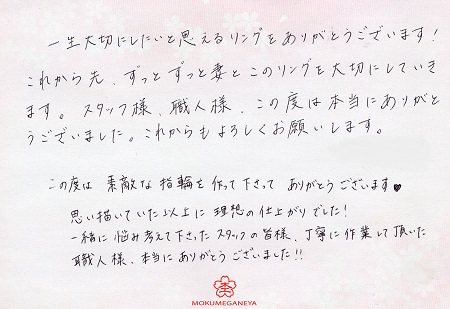 一生大切にしたいと思えるリングをありがとうございます!
これから先、ずっとずっと妻とこのリングを大切にしていき
ます。スタッフ様、職人様、この度は本当にありがと
うございました。これからもよろしくお願いします。
この度は 素敵な 指輪を 作って 下さって ありがとう ございます♥
思い描いていた以上に 理想の 仕上がりでした!
一緒に 悩み 考えて 下さった スタッフの 皆様、丁寧に 作業して 頂いた
職人様、本当に ありがとう ございました!!
MOKUMEGANEYA